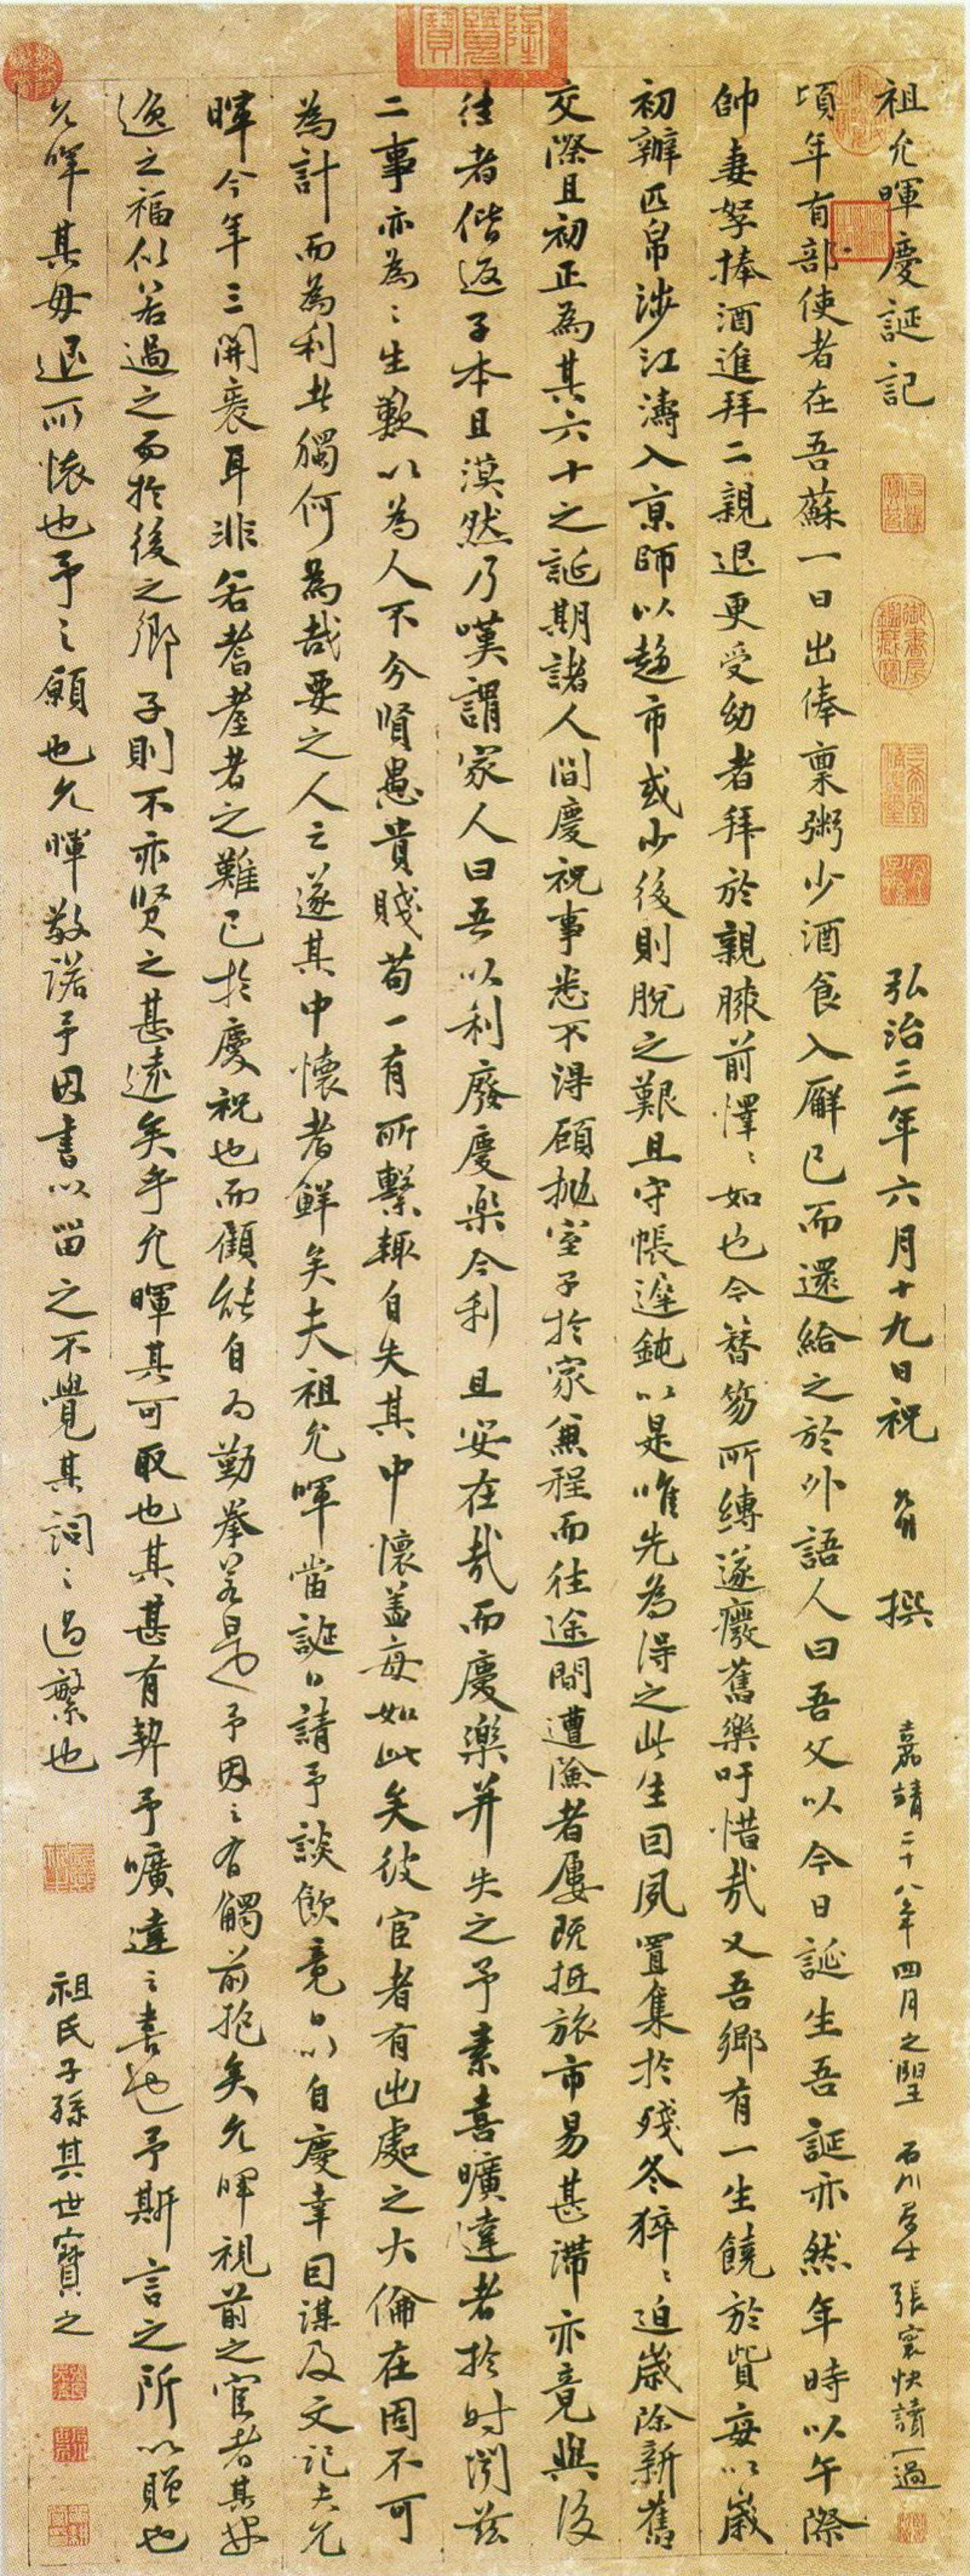 祖允暉慶誕記 弘治三年六月十九日祝 撰 嘉靖二十八年四月之朢 石川居士張寰快讀一過
頃年有部使者在吾蘇一日出俸稟粥少酒食入廨已而還給之於外語人曰吾父以今日誕生吾誕亦然年時以午際
帥妻孥捧酒進拜二親退更受幼者拜於親膝前懌〻如也今簪笏所縛遂癈舊樂吁惜哉又吾鄉有一生饒於貲每以歲
初辦匹帛涉江濤入京師以趍市或少後則脫之艱且守帳遲鈍以是唯先為得之此生回夙置集於殘冬猝〻迫歲除新舊
交際且初正為其六十之誕期諸人間慶祝事悉不淂顧抛室子於家兼程而往途間遭險者屢既抵旅市易甚滯亦竟與後
往者偕返子本且漠然乃嘆謂家人曰吾以利廢慶樂今利且安在哉而慶樂并失之予素喜曠達者於时聞茲
二事亦為〻生歎以為人不分賢愚貴賤苟一有所繫輙自失其中懷盖每如此矣彼宦者有出處之大倫在固不可
為計而為利者獨何為哉要之人之遂其中懷者鮮矣夫祖允暉當誕日請予談飲竟日以自慶幸因謀及文記夫允
暉今年三開袠耳非若耆耋者之難已於慶祝也而顧能自为勤拳若是予因之有觸前抱矣允暉視前之宦者其
逸之福似若過之而於後之鄉子則不亦贤之甚遠矣乎允暉其可取也其甚有契予曠達之喜也予斯言之所以贈也
允暉其毋退所懷也予之願也允暉敬諾予因書以畱之不覺其詞〻過繁也 祖氏子孫其世寶之